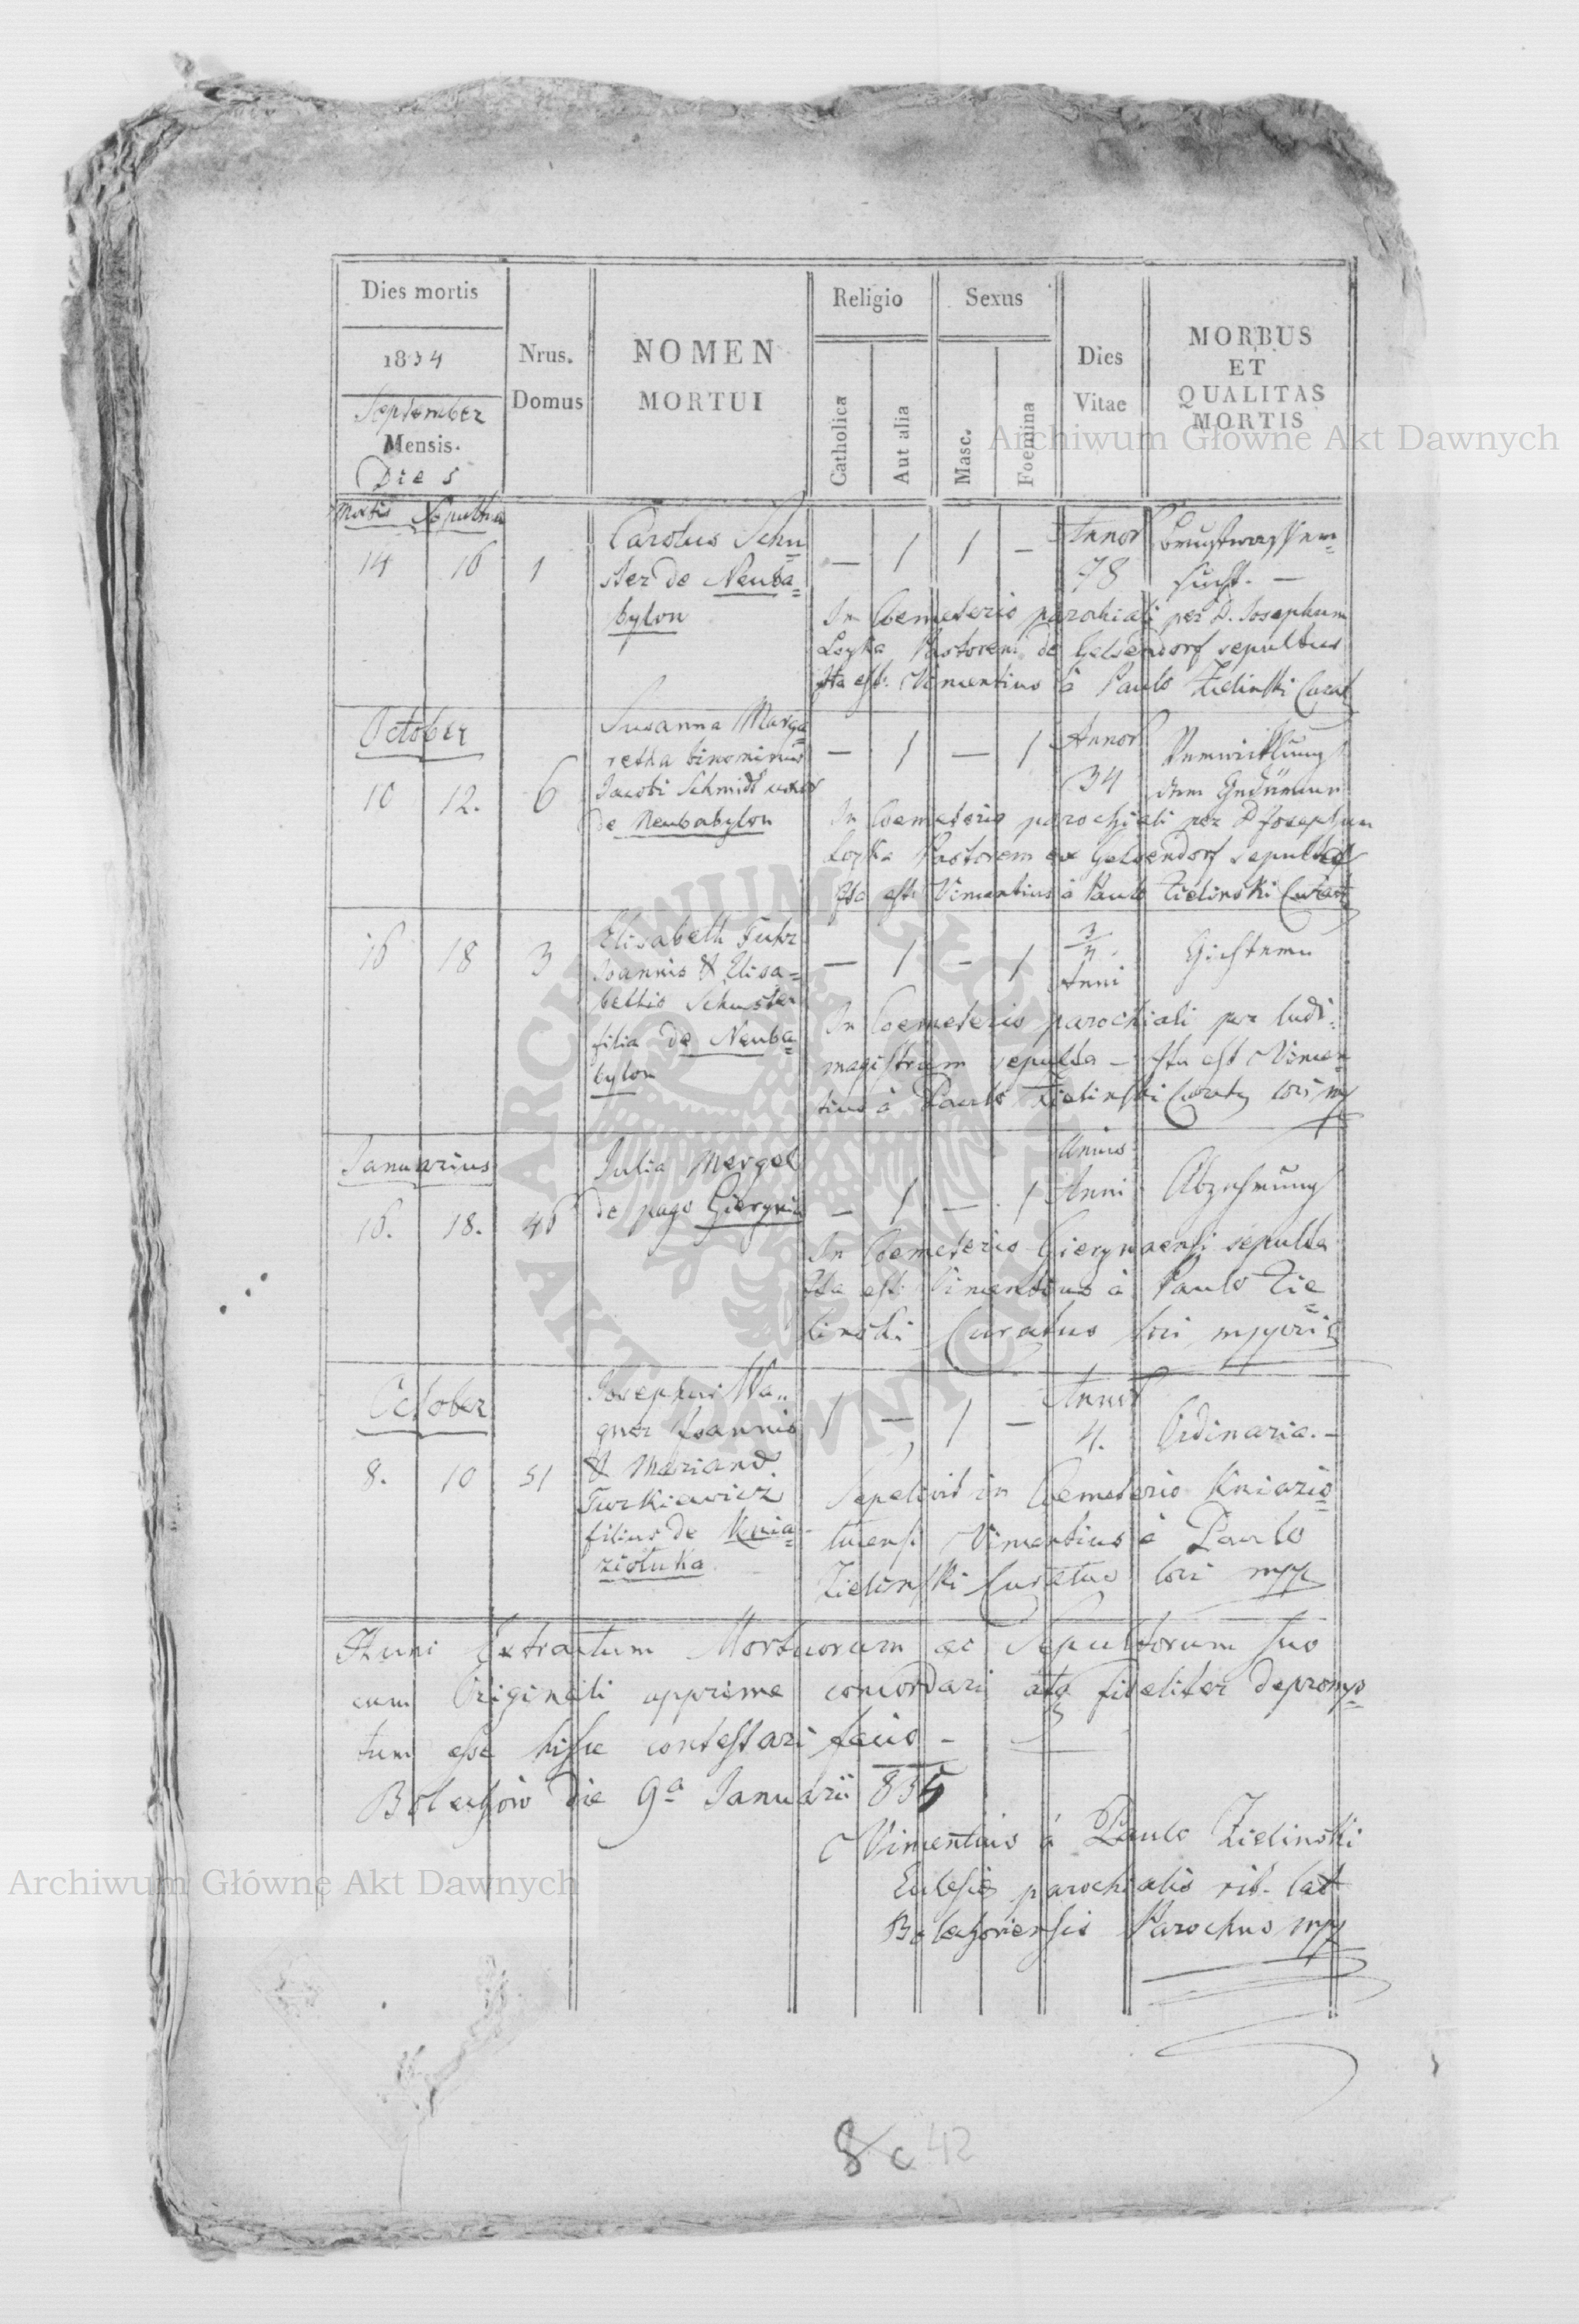 Dies mortis
1834
September
Mensis.
Dies
Mortis Sepultura
Nrus.
Domus
NOMEN
MORTUI
Religio
Catholica
Aut alia
Sexus
Masc.
Foemina
Dies
Vitae
MORBUS
ET
QUALITAS
MORTIS
Archiwum Główne Akt Dawnych
14 16 1
Carolus Schu=
ster de Neuba=
bylon
— 1 1 —
Annor
78
Brustwasser=
sucht. —
In Coemeterio parochiali per D. Josephum
Loyka Pastorem de Gelsendorf sepultus
Ita est. Vincentius à Paulo Zielinski Curat
October
10 12. 6
Susanna Marga=
retha binominus
Jacobi Schmidt uxor
de Neubabylon
— 1 — 1
Annor
34
Verwicklung
der Gedärme
In Coemeterio parochiali per D Josephum
Loyka Pastorem ex Gelsendorf sepulta
Ita est Vincentius à Paulo Zielinski Curat
16 18 3
Elisabeth Fuhr
Joannis & Elisa=
bethis Schuster
filia de Neuba=
bylon
— 1 — 1
3/4
Anni
In Coemeterio parochiali per ludi=
magistrum sepulta — Ita est Vincen=
tius à Paulo Zielinski Curat loci mp
Januarius
16. 18. 46
Julia Mergel
de pago
— 1 — 1
Unius
Anni
Abzehrung
In Coemeterio sepulta
Ita est Vincentius à Paulo Zie=
linski Curatus loci mppria
October
8. 10 51
Josephus Wa=
gner Joannis
& Mariannae
Turkiewicz
filius de Knia=
ziołuka
1 — 1 —
Annor
4.
Ordinaria. —
Sepelivit in Coemeterio Kniazio=
lucens. Vincentius à Paulo
Zielinski Curatus loci mpp
Hunc Extractum Mortuorum ac Sepultorum suo
cum Originali apprime concordari atq fideliter depromp=
tum esse hisce contestari facio —
Bolechów die 9a Januarii 835
Vincentius à Paulo Zielinski
Eclesiae parochialis rit. lat.
Bolechoviensis Parochus mpp
Archiwum Główne Akt Dawnych
ARCHIWUM GŁÓWNE
AKT DAWNYCH
8c 42